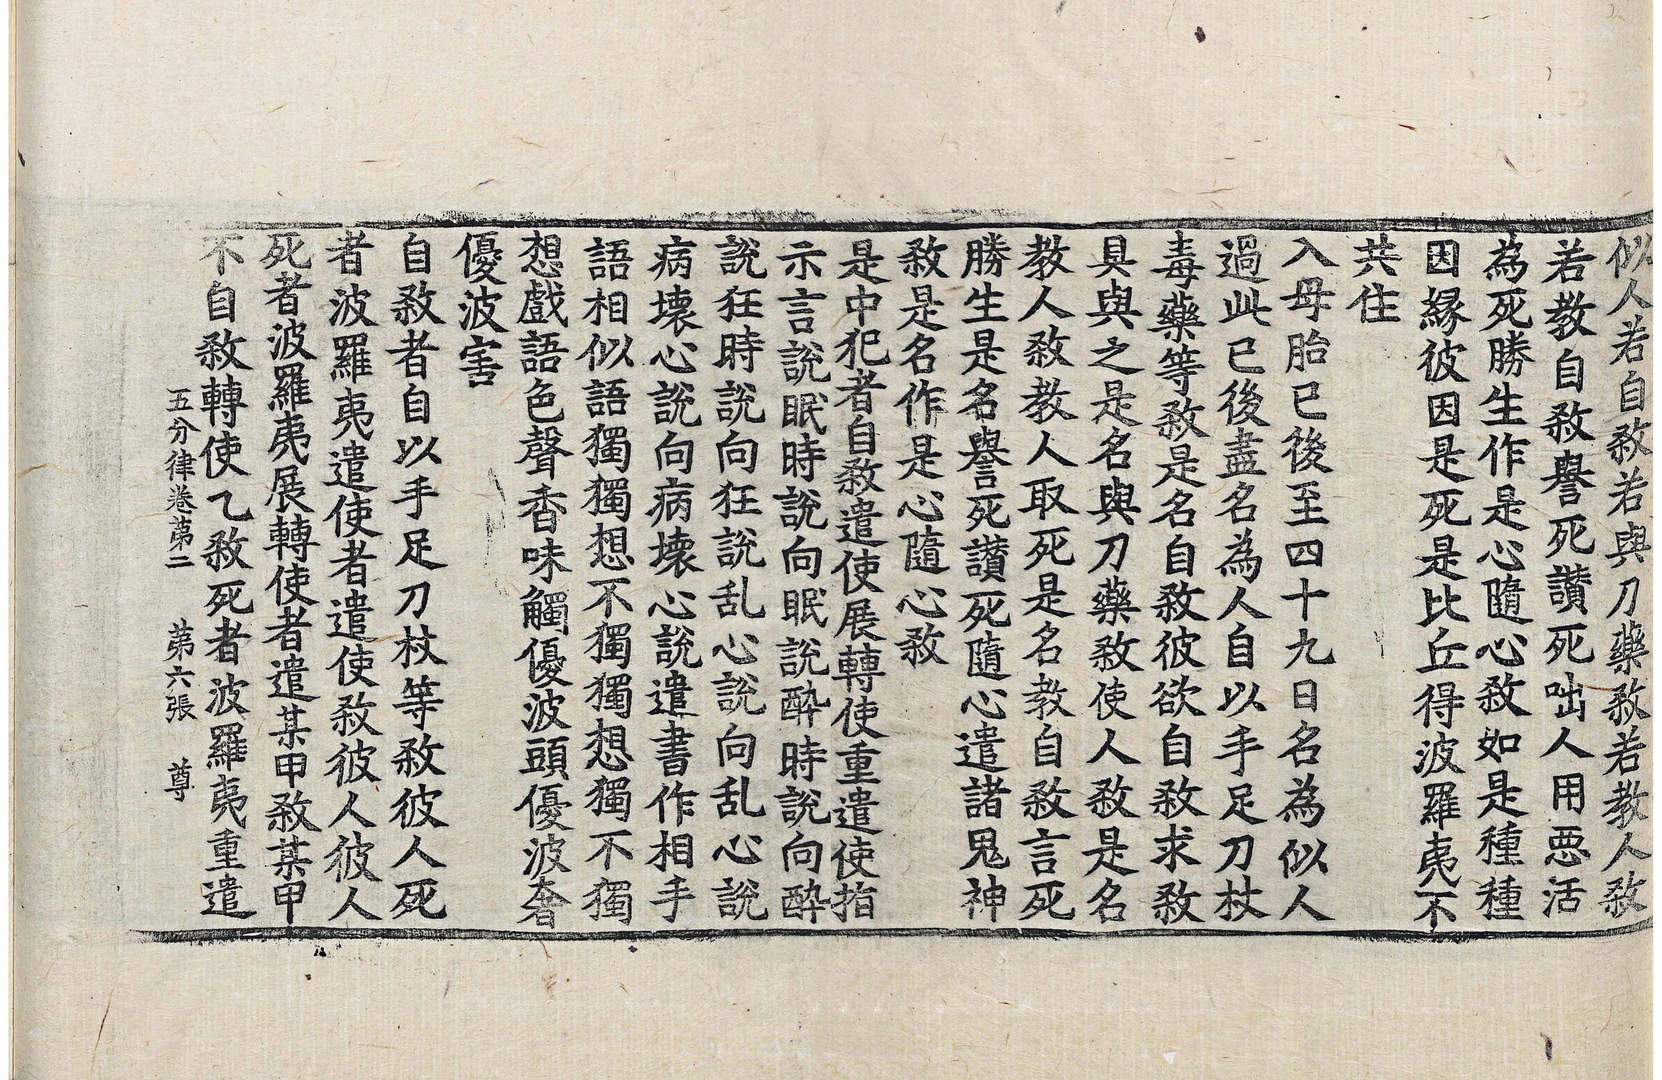 似人若自敎若與刀藥敎若教人敎
若教自敎譽死讃死咄人用悪活
為死勝生作是心隨心敎如是種種
因縁彼因是死是比丘得波羅夷不
共住
入母胎已後至四十九日名為似人
過此已後盡名為人自以手足刀杖
毒藥等敎是名自敎彼欲自敎求敎
具與之是名與刀藥敎使人敎是名
教人敎教人取死是名教自敎言死
勝生是名譽死讃死隨心遣諸鬼神
敎是名作是心隨心敎
是中犯者自敎遣使展轉使重遣使指
示言說眠時說向眠說酔時說向酔
說狂時說向狂說乱心說向乱心說
病壊心說向病壊心說遣書作相手
語相似語獨獨想不獨獨想獨不獨
想戲語色聲香味觸優波頭優波奢
優波害
自敎者自以手足刀杖等敎彼人死
者波羅夷遣使者遣使敎彼人彼人
死者波羅夷展轉使者遣某甲敎某甲
不自敎轉使乙敎死者波羅夷重遣
五分律卷苐二 苐六張 尊